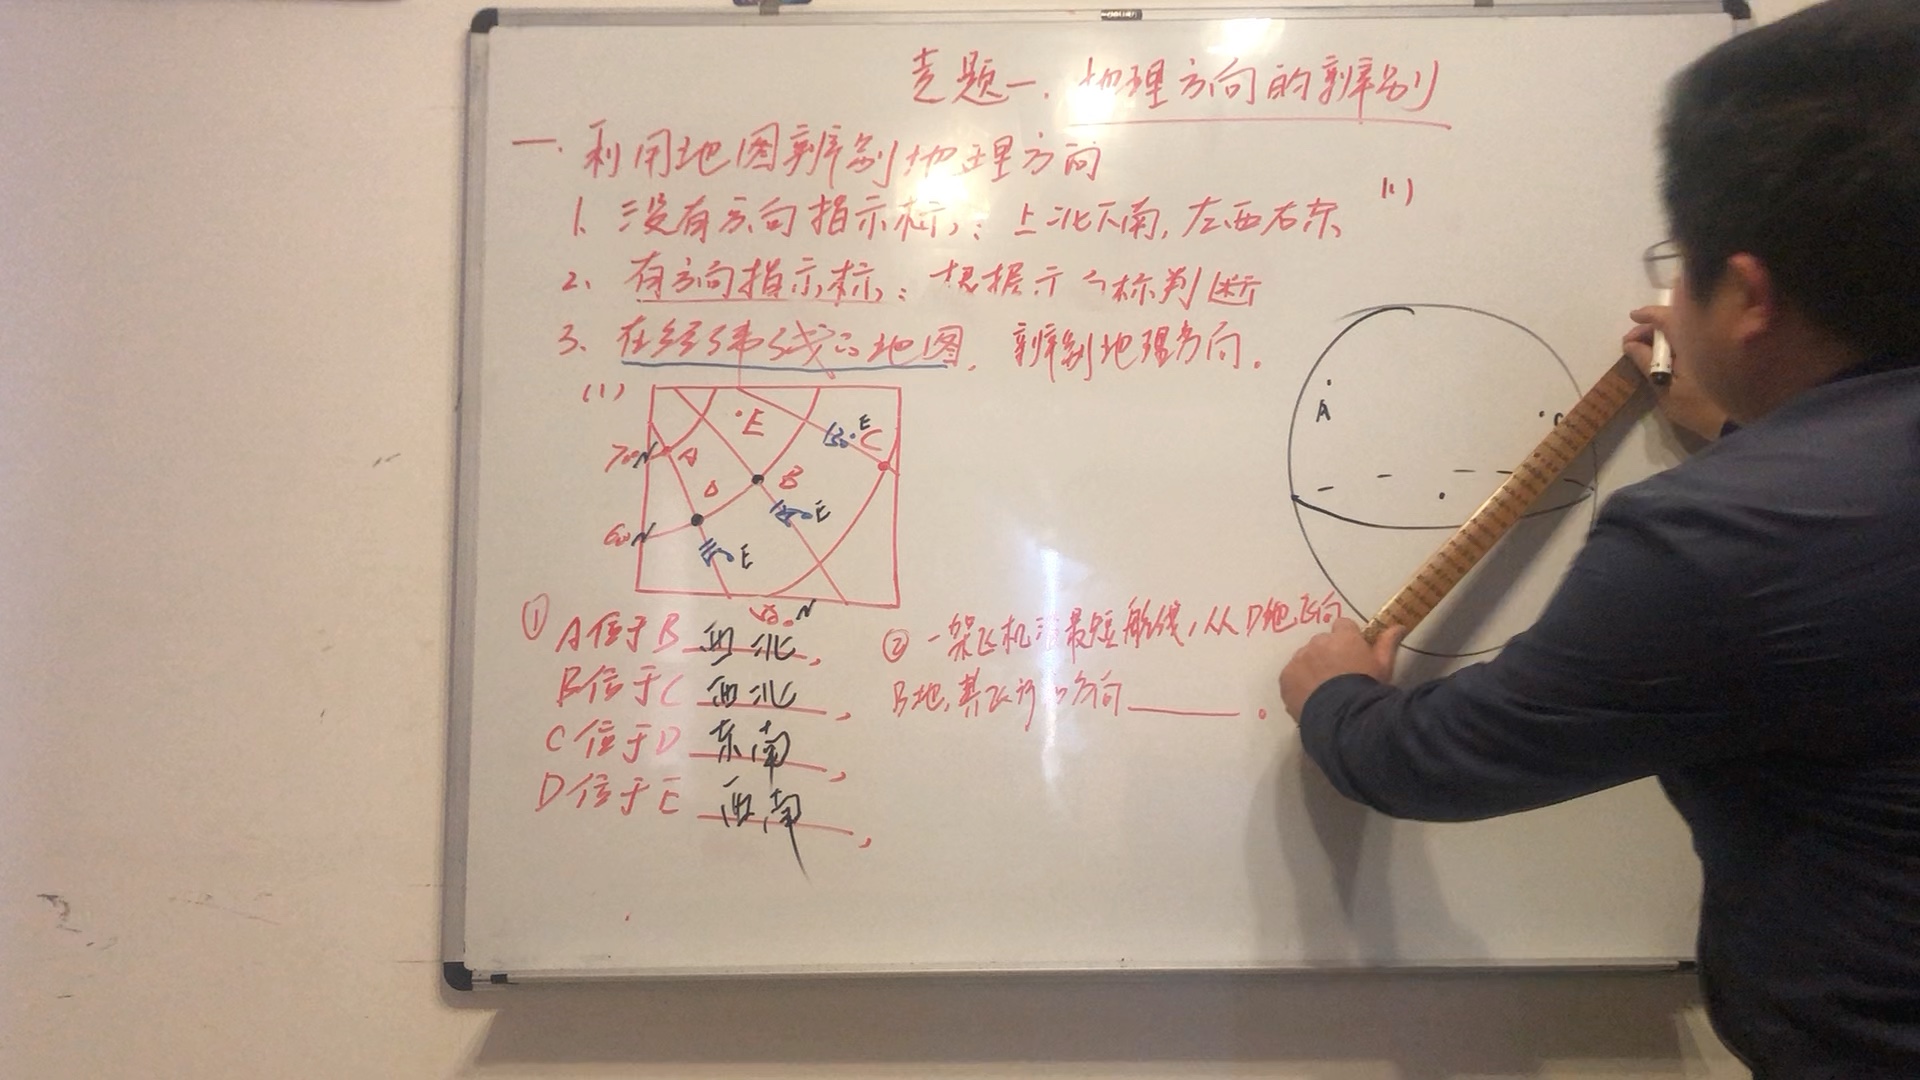 专题一.地理方向的辨别
一.利用地图辨别地理方向
1、没有方向指示标:上北下南,左西右东
2、有方向指示标:根据示向标判断
3、在经纬线的地图,辨别地理方向.
(1)
(1)
70°N
60°N
A
B
C
D
E
E
E
E
N
A
①
A位于B西北,
B位于C西北,
C位于D东南,
D位于E西南,
②一架飞机沿最短航线,从D地飞向
B地,其飞行的方向______。